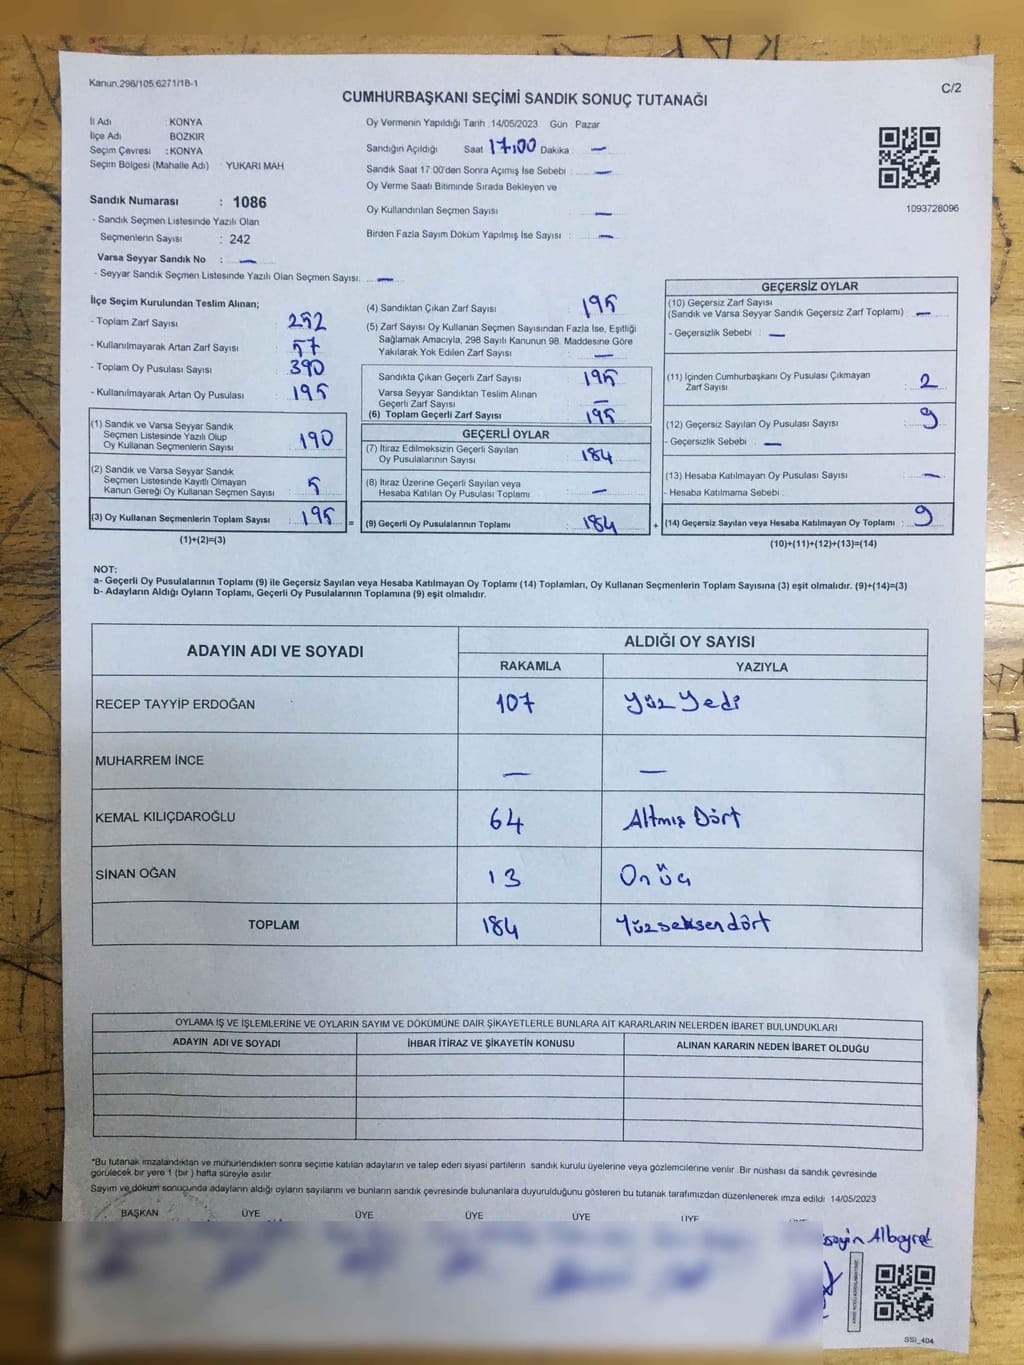 Kanun.298/105.6271/18-1
C/2
CUMHURBAŞKANI SEÇİMİ SANDIK SONUÇ TUTANAĞI
İl Adı : KONYA
İlçe Adı : BOZKIR
Seçim Çevresi : KONYA
Seçim Bölgesi (Mahalle Adı) : YUKARI MAH
Oy Vermenin Yapıldığı Tarih : 14/05/2023 Gün : Pazar
Sandığın Açıldığı Saat 17:00 Dakika : —
Sandık Saat 17:00'den Sonra Açımış İse Sebebi : —
Oy Verme Saati Bitiminde Sırada Bekleyen ve
Oy Kullandırılan Seçmen Sayısı : —
Birden Fazla Sayım Döküm Yapılmış İse Sayısı : —
1093728096
Sandık Numarası : 1086
- Sandık Seçmen Listesinde Yazılı Olan
Seçmenlerin Sayısı : 242
Varsa Seyyar Sandık No : —
- Seyyar Sandık Seçmen Listesinde Yazılı Olan Seçmen Sayısı: —
İlçe Seçim Kurulundan Teslim Alınan;
- Toplam Zarf Sayısı : 252
- Kullanılmayarak Artan Zarf Sayısı : 57
- Toplam Oy Pusulası Sayısı : 390
- Kullanılmayarak Artan Oy Pusulası : 195
(1) Sandık ve Varsa Seyyar Sandık
Seçmen Listesinde Yazılı Olup
Oy Kullanan Seçmenlerin Sayısı : 190
(2) Sandık ve Varsa Seyyar Sandık
Seçmen Listesinde Kayıtlı Olmayan
Kanun Gereği Oy Kullanan Seçmen Sayısı : 5
(3) Oy Kullanan Seçmenlerin Toplam Sayısı : 195 =
(1)+(2)=(3)
(4) Sandıktan Çıkan Zarf Sayısı : 195
(5) Zarf Sayısı Oy Kullanan Seçmen Sayısından Fazla İse, Eşitliği
Sağlamak Amacıyla, 298 Sayılı Kanunun 98. Maddesine Göre
Yakılarak Yok Edilen Zarf Sayısı : —
Sandıkta Çıkan Geçerli Zarf Sayısı : 195
Varsa Seyyar Sandıktan Teslim Alınan
Geçerli Zarf Sayısı : —
(6) Toplam Geçerli Zarf Sayısı : 195
GEÇERLİ OYLAR
(7) İtiraz Edilmeksizin Geçerli Sayılan
Oy Pusulalarının Sayısı : 184
(8) İtiraz Üzerine Geçerli Sayılan veya
Hesaba Katılan Oy Pusulası Toplamı : —
(9) Geçerli Oy Pusulalarının Toplamı : 184 +
GEÇERSİZ OYLAR
(10) Geçersiz Zarf Sayısı
(Sandık ve Varsa Seyyar Sandık Geçersiz Zarf Toplamı) : —
- Geçersizlik Sebebi : —
(11) İçinden Cumhurbaşkanı Oy Pusulası Çıkmayan
Zarf Sayısı : 2
(12) Geçersiz Sayılan Oy Pusulası Sayısı : 9
- Geçersizlik Sebebi : —
(13) Hesaba Katılmayan Oy Pusulası Sayısı : —
- Hesaba Katılmama Sebebi :
(14) Geçersiz Sayılan veya Hesaba Katılmayan Oy Toplamı : 9
(10)+(11)+(12)+(13)=(14)
NOT:
a- Geçerli Oy Pusulalarının Toplamı (9) ile Geçersiz Sayılan veya Hesaba Katılmayan Oy Toplamı (14) Toplamları, Oy Kullanan Seçmenlerin Toplam Sayısına (3) eşit olmalıdır. (9)+(14)=(3)
b- Adayların Aldığı Oyların Toplamı, Geçerli Oy Pusulalarının Toplamına (9) eşit olmalıdır.
ADAYIN ADI VE SOYADI ALDIĞI OY SAYISI
RAKAMLA YAZIYLA
RECEP TAYYİP ERDOĞAN 107 Yüz Yedi
MUHARREM İNCE — —
KEMAL KILIÇDAROĞLU 64 Altmış Dört
SİNAN OĞAN 13 On üç
TOPLAM 184 Yüzseksendört
OYLAMA İŞ VE İŞLEMLERİNE VE OYLARIN SAYIM VE DÖKÜMÜNE DAİR ŞİKAYETLERLE BUNLARA AİT KARARLARIN NELERDEN İBARET BULUNDUKLARI
ADAYIN ADI VE SOYADI İHBAR İTİRAZ VE ŞİKAYETİN KONUSU ALINAN KARARIN NEDEN İBARET OLDUĞU
*Bu tutanak imzalandıktan ve mühürlendikten sonra seçime katılan adayların ve talep eden siyasi partilerin sandık kurulu üyelerine veya gözlemcilerine verilir. Bir nüshası da sandık çevresinde
görülecek bir yere 1 (bir) hafta süreyle asılır.
Sayım ve döküm sonucunda adayların aldığı oyların sayılarını ve bunların sandık çevresinde bulunanlara duyurulduğunu gösteren bu tutanak tarafımızdan düzenlenerek imza edildi 14/05/2023
BAŞKAN ÜYE ÜYE ÜYE ÜYE ÜYE
Albayrak
SSI_404